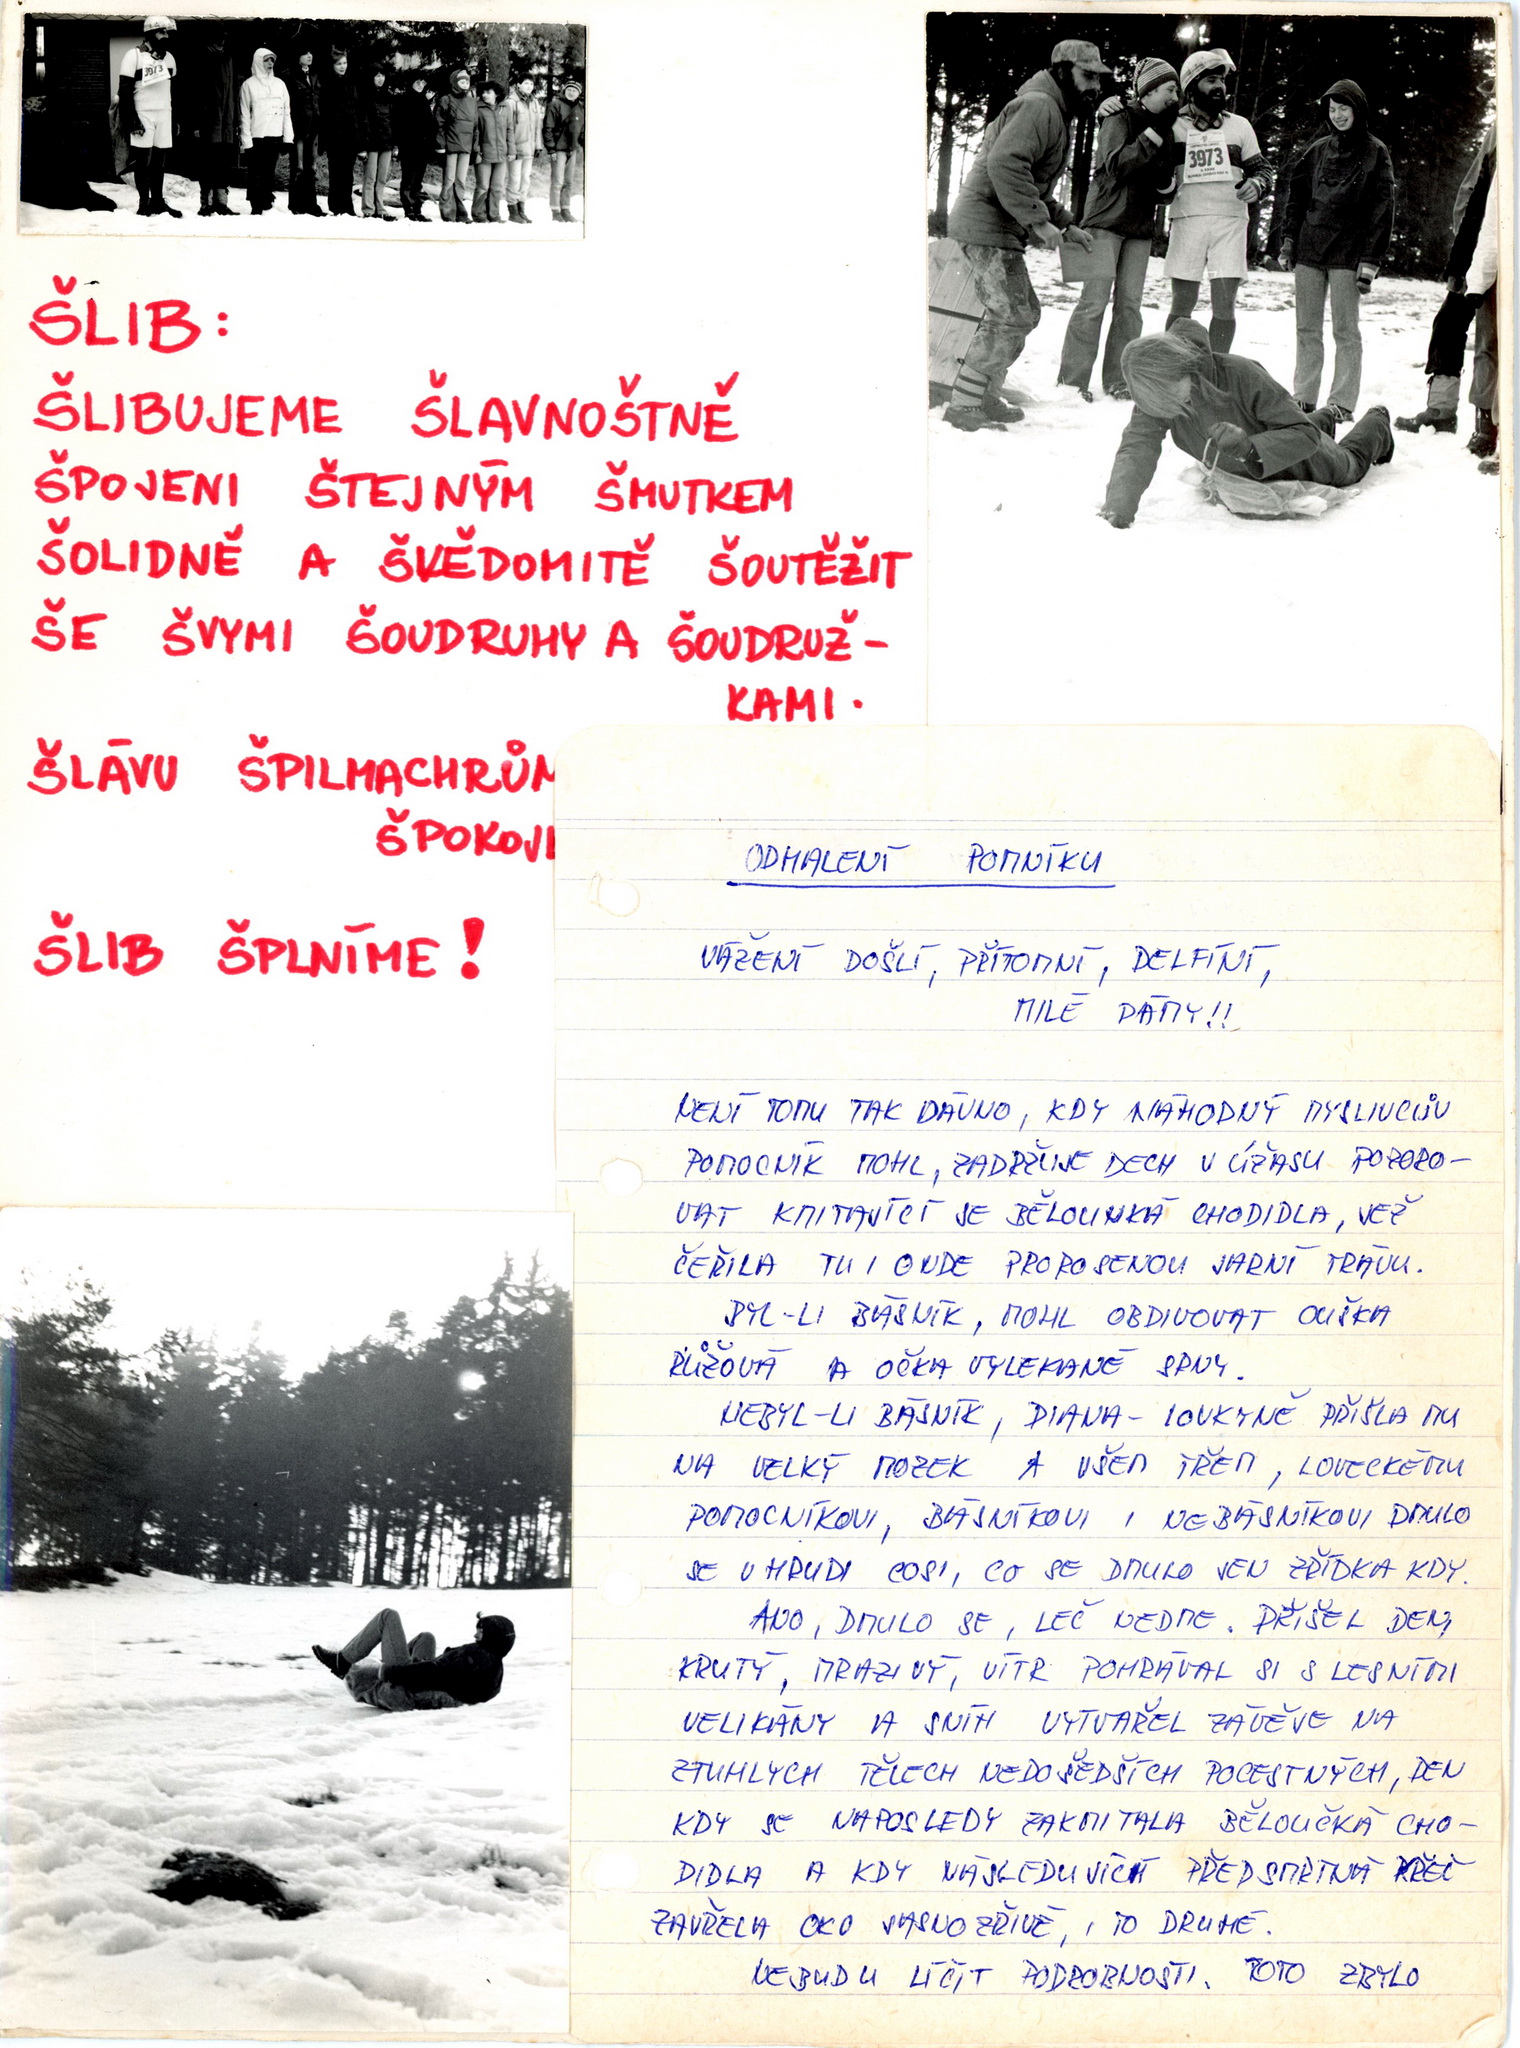 3973
3973
ŠLIB:
ŠLIBUJEME ŠLAVNOŠTNĚ
ŠPOJENI ŠTEJNÝM ŠMUTKEM
ŠOLIDNĚ A ŠVĚDOMITĚ ŠOUTĚŽIT
ŠE ŠVÝMI ŠOUDRUHY A ŠOUDRUŽ-
KAMI.
ŠLÁVU ŠPILMACHRŮM
ŠPOKOJ
ŠLIB ŠPLNÍME!
ODHALENÍ POMNÍKU
VÁŽENÍ DOŠLÍ, PŘÍTOMNÍ, DELFÍNÍ,
MILÉ DÁMY!!
NENÍ TOMU TAK DÁVNO, KDY NÁHODNÝ MYSLIVCŮV
POMOCNÍK MOHL, ZADRŽUJE DECH V ÚŽASU POZORO-
VAT KMITAJÍCÍ SE BĚLOUNKÁ CHODIDLA, JEŽ
ČEŘILA TU I ONDE PROROSENOU JARNÍ TRÁVU.
BYL-LI BÁSNÍK, MOHL OBDIVOVAT OUŠKA
RŮŽOVÁ A OČKA VYLEKANÉ SRNY.
NEBYL-LI BÁSNÍK, DIANA-LOVKYNĚ PŘIŠLA MU
NA VELKÝ MOZEK A VŠEM TŘEM, LOVECKÉMU
POMOCNÍKOVI, BÁSNÍKOVI I NEBÁSNÍKOVI DMULO
SE V HRUDI COSI, CO SE DMULO JEN ZŘÍDKA KDY.
ANO, DMULO SE, LEČ NEDME. PŘIŠEL DEN,
KRUTÝ, MRAZIVÝ, VÍTR POHRÁVAL SI S LESNÍMI
VELIKÁNY A SNÍH VYTVÁŘEL ZÁVĚJE NA
ZTUHLÝCH TĚLECH NEDOŠEDŠÍCH POCESTNÝCH, DEN
KDY SE NAPOSLEDY ZAKMITALA BĚLOUČKÁ CHO-
DIDLA A KDY NÁSLEDUJÍCÍ PŘEDSMRTNÁ KŘEČ
ZAVŘELA OKO JASNOZŘIVÉ, I TO DRUHÉ.
NEBUDU LÍČIT PODROBNOSTI. TOTO ZBYLO